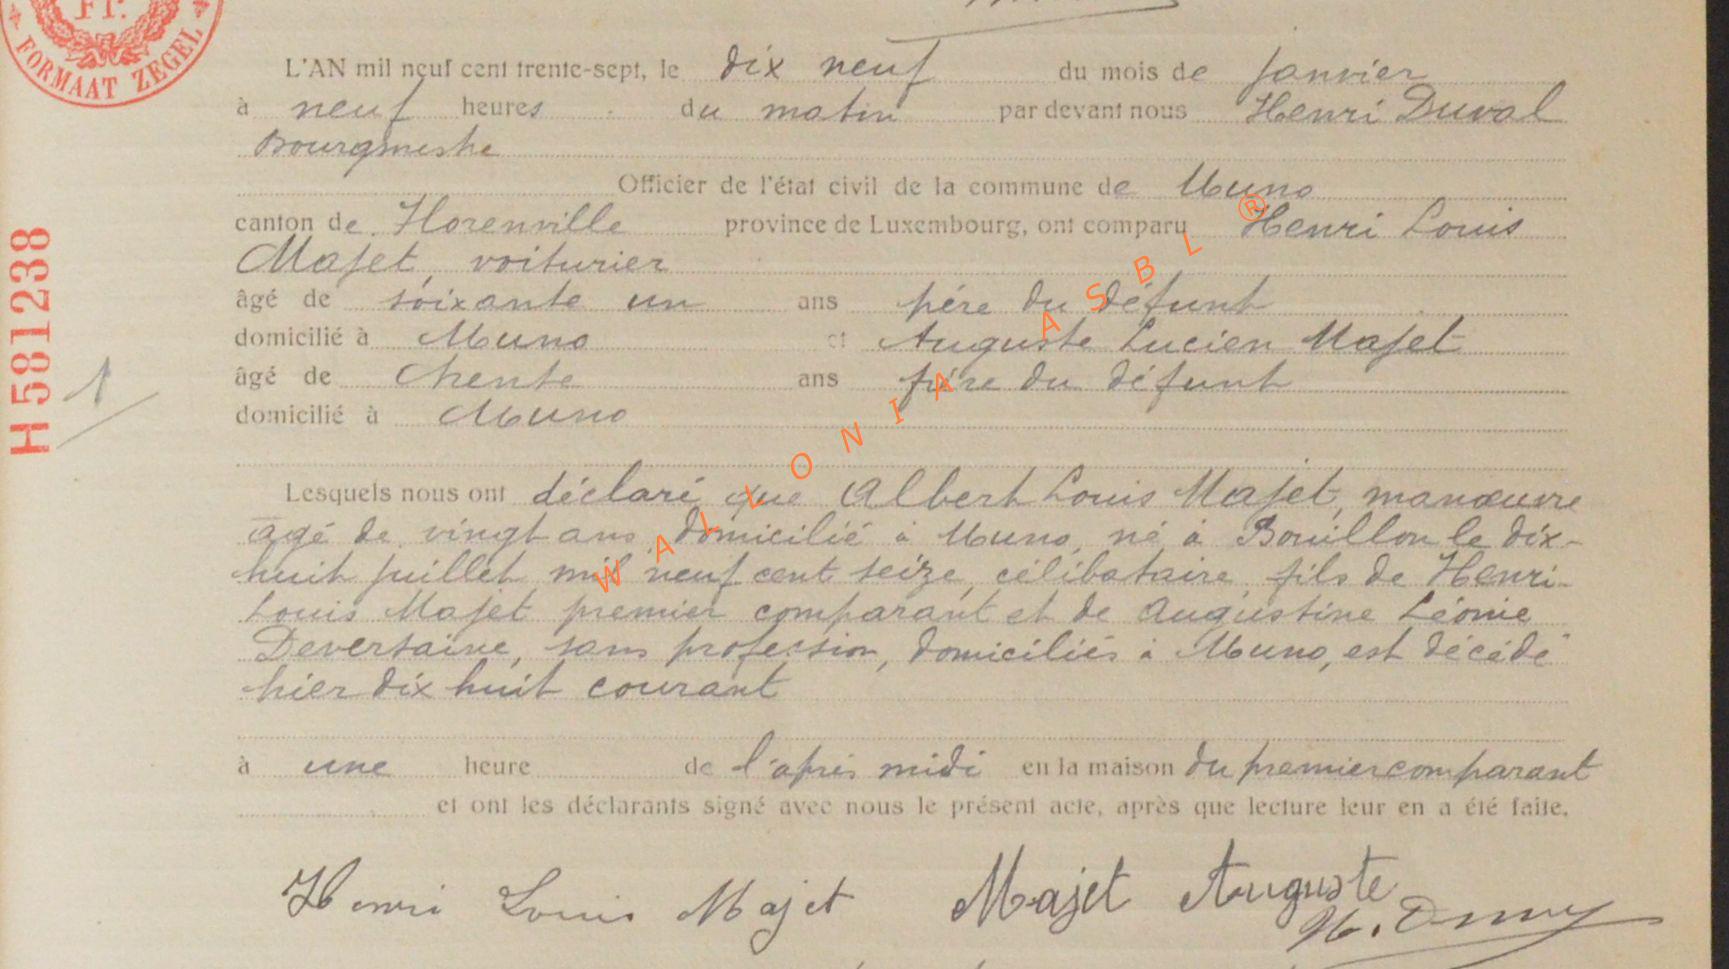 Fr.
FORMAAT ZEGEL
L'AN mil neuf cent trente-sept, le dix neuf du mois de janvier
à neuf heures du matin par devant nous Henri Duval
Bourgmestre
Officier de l'état civil de la commune de Muno
canton de Florenville province de Luxembourg, ont comparu Henri Louis
Majet, voiturier
âgé de soixante un ans père du défunt
domicilié à Muno et Auguste Lucien Majet
âgé de trente ans frère du défunt
domicilié à Muno
Lesquels nous ont déclaré que Albert Louis Majet, manœuvre
âgé de vingt ans, domicilié à Muno, né à Bouillon le dix-
huit juillet mil neuf cent seize, célibataire, fils de Henri-
Louis Majet premier comparant et de Augustine Léonie
Deversaine, sans profession, domiciliés à Muno, est décédé
hier dix huit courant
à une heure de l'après midi en la maison du premier comparant
et ont les déclarants signé avec nous le présent acte, après que lecture leur en a été faite.
Henri Louis Majet Majet Auguste
H 581238
1
WALLONIA ASBL ®